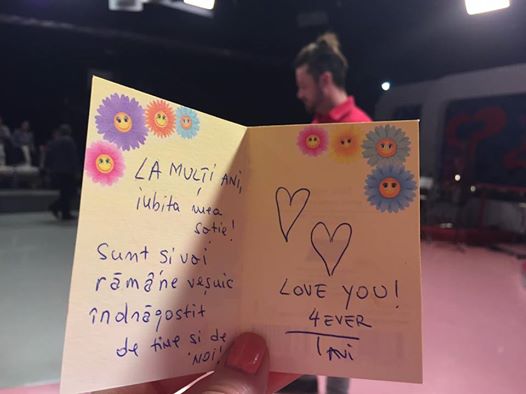 LA MULȚI ANI,
iubita mea
soție!
Sunt și voi
rămâne veșnic
îndrăgostit
de tine și de
NOI!
LOVE YOU!
4EVER
1 ANI